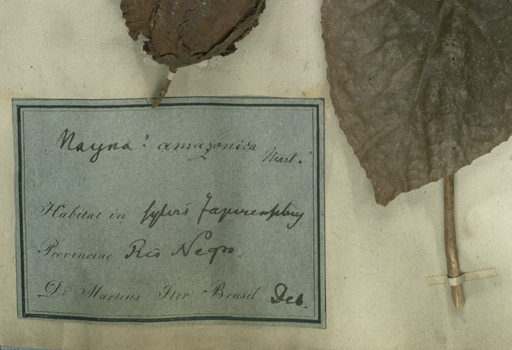 Mayna? amazonica Mart.
Habitat in sylvis Japurensibus
Provinciae Rio Negro.
Dr Martius Iter Brasil. Deb.